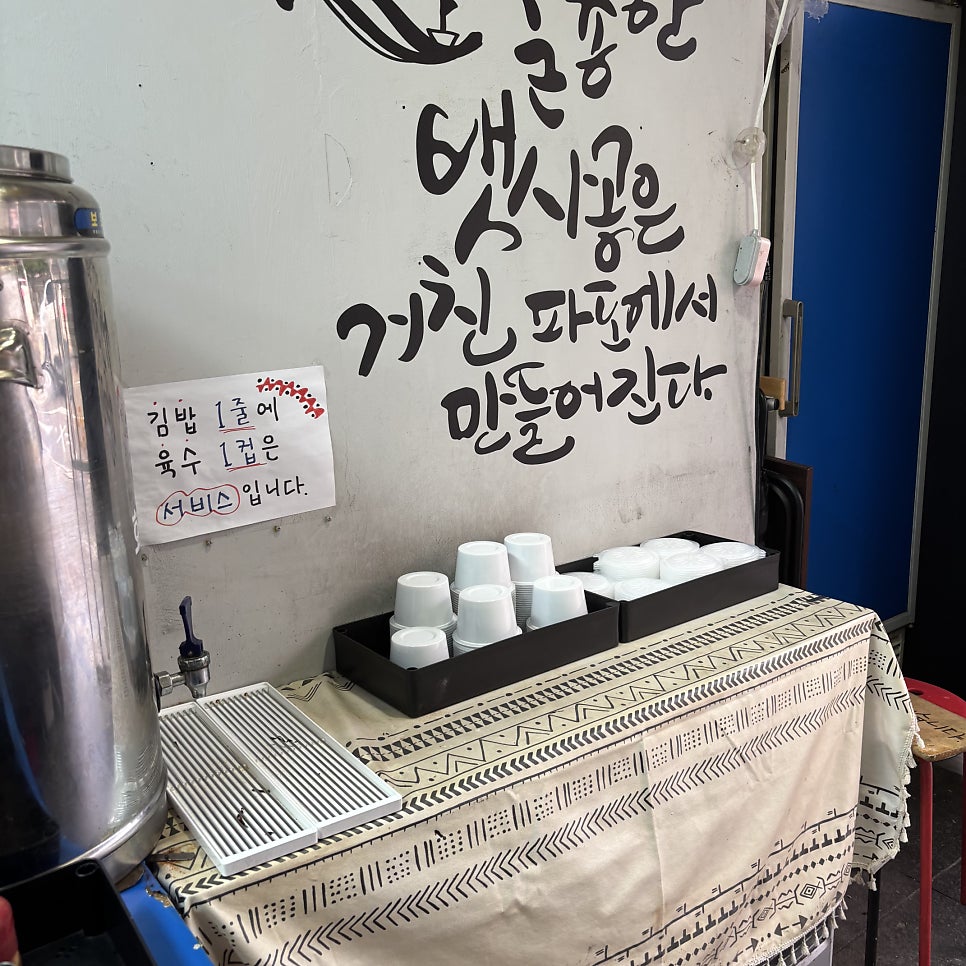 훌륭한
뱃사공은
거친 파도에서
만들어진다.
김밥 1줄에
육수 1컵은
서비스입니다.